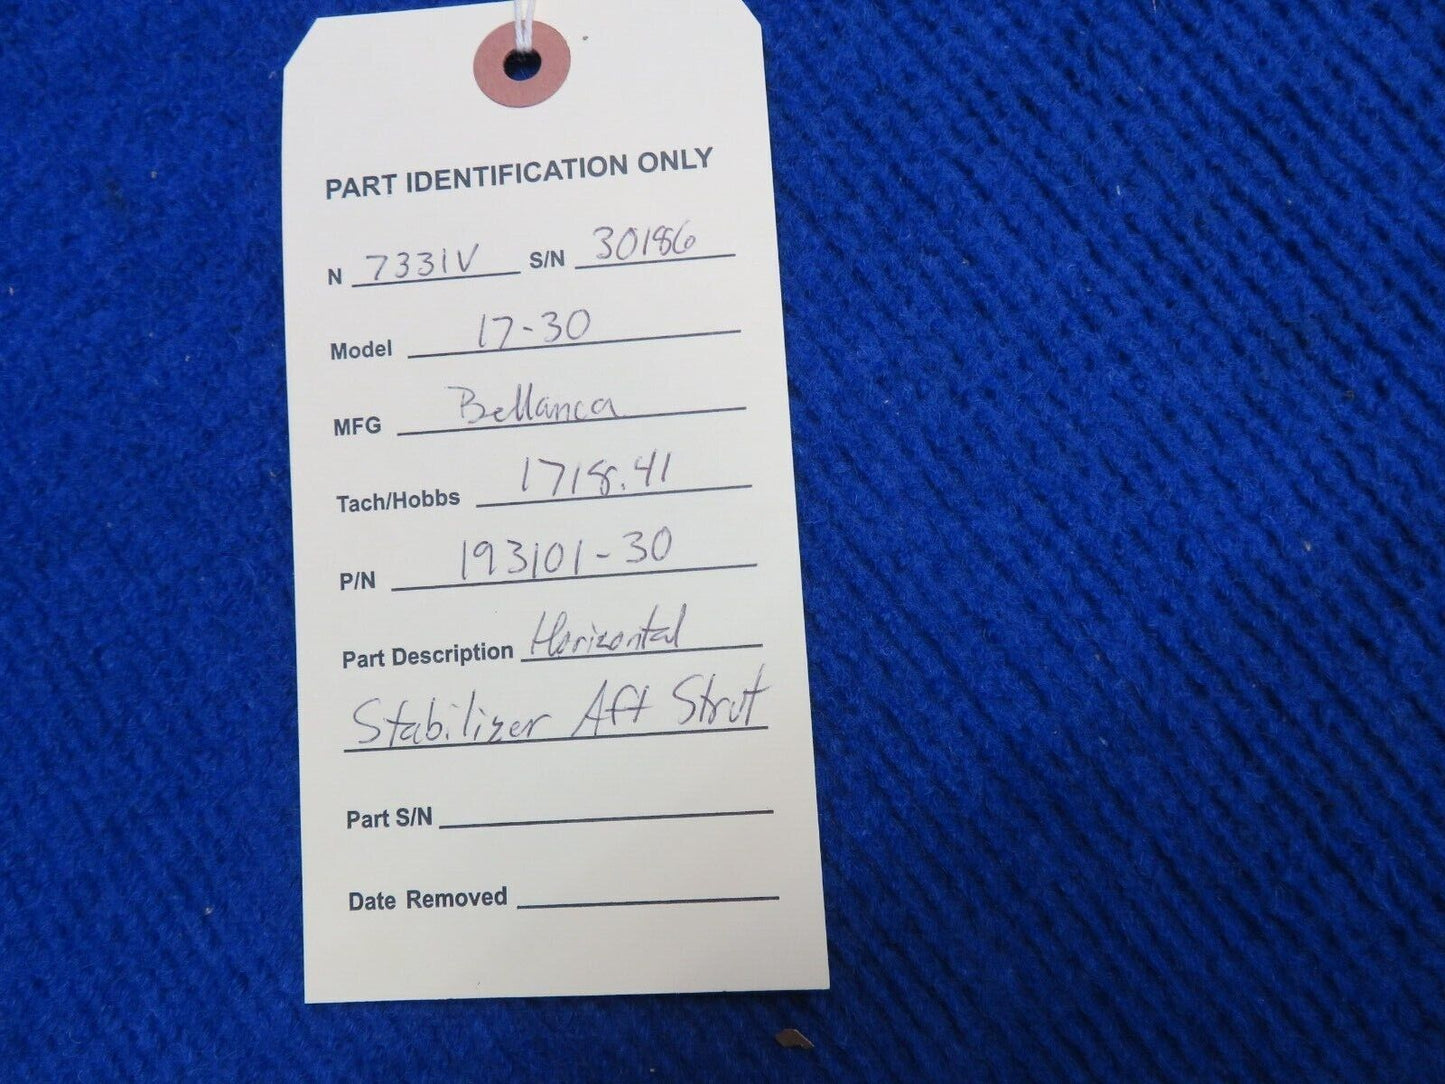 PART IDENTIFICATION ONLY
N 7331V S/N 30186
Model 17-30
MFG Bellanca
Tach/Hobbs 1718.41
P/N 193101-30
Part Description Horizontal
Stabilizer Aft Strut
Part S/N
Date Removed